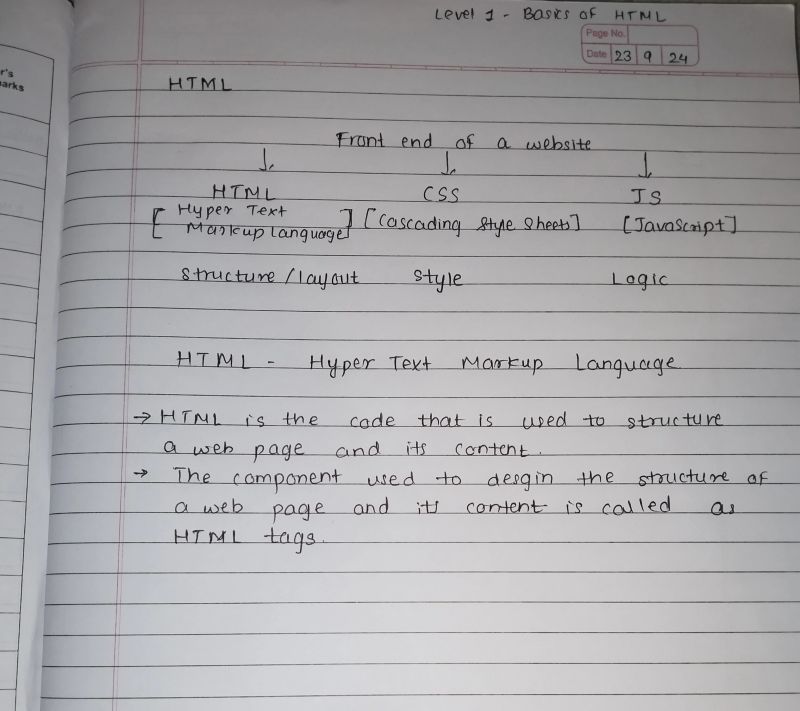 Level 1 - Basics of HTML
Page No.
Date 23 9 24
r's
arks
HTML
Front end of a website
HTML CSS JS
[Hyper Text Markup Language] [Cascading Style Sheets] [JavaScript]
Structure / layout Style Logic
HTML - Hyper Text Markup Language
→ HTML is the code that is used to structure
a web page and its content.
→ The component used to desgin the structure of
a web page and its content is called as
HTML tags.